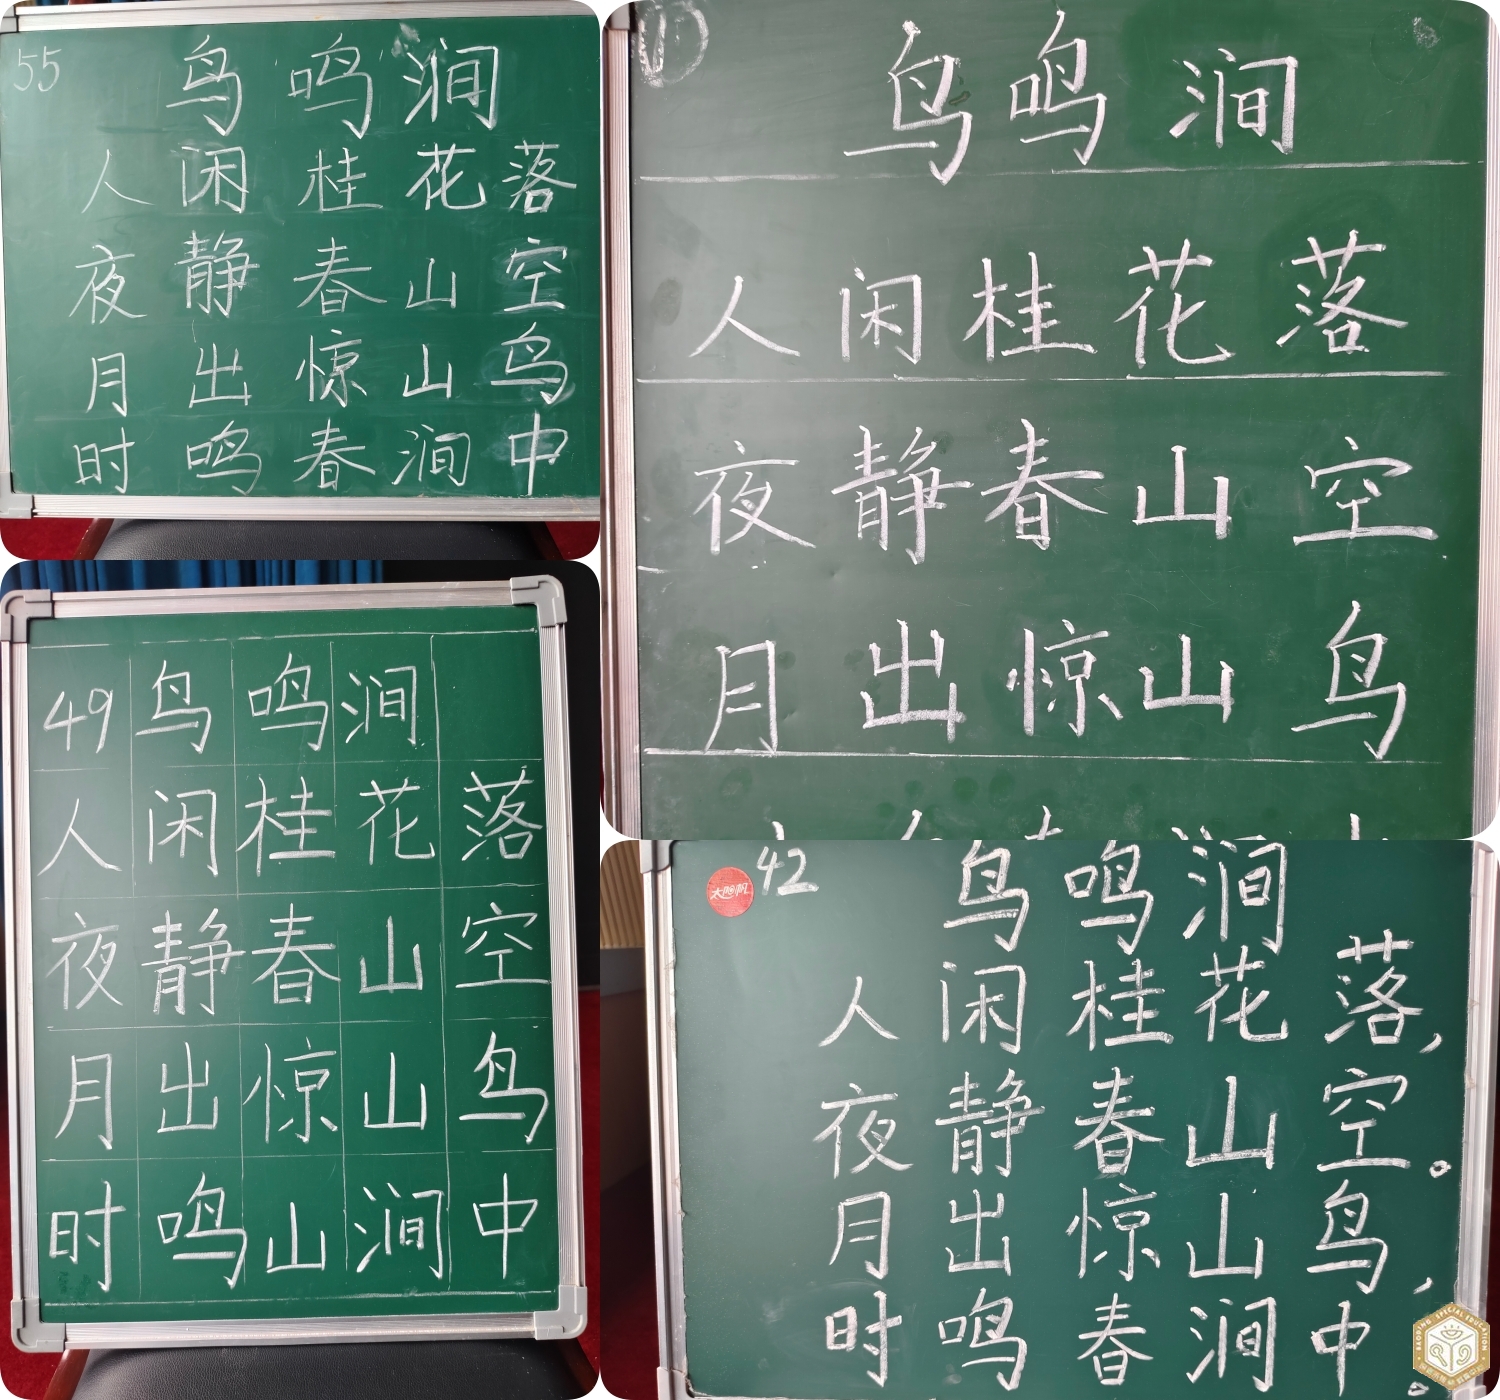 55
鸟鸣涧
人闲桂花落
夜静春山空
月出惊山鸟
时鸣春涧中
鸟鸣涧
人闲桂花落
夜静春山空
月出惊山鸟
49 鸟鸣涧
人闲桂花落
夜静春山空
月出惊山鸟
时鸣山涧中
太阳帆 42
鸟鸣涧
人闲桂花落，
夜静春山空。
月出惊山鸟，
时鸣春涧中。